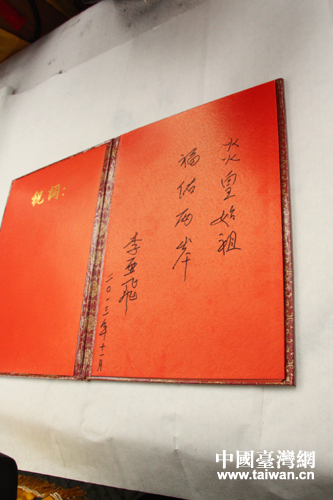 祝詞：
炎皇始祖
福佑两岸
李亚飞
二〇一三年十一月
中國臺灣網
www.taiwan.cn